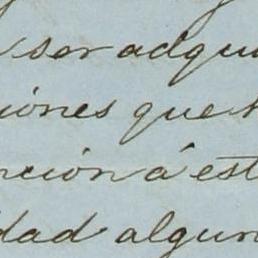 ser adqui
iones que
nción á est
dad algun